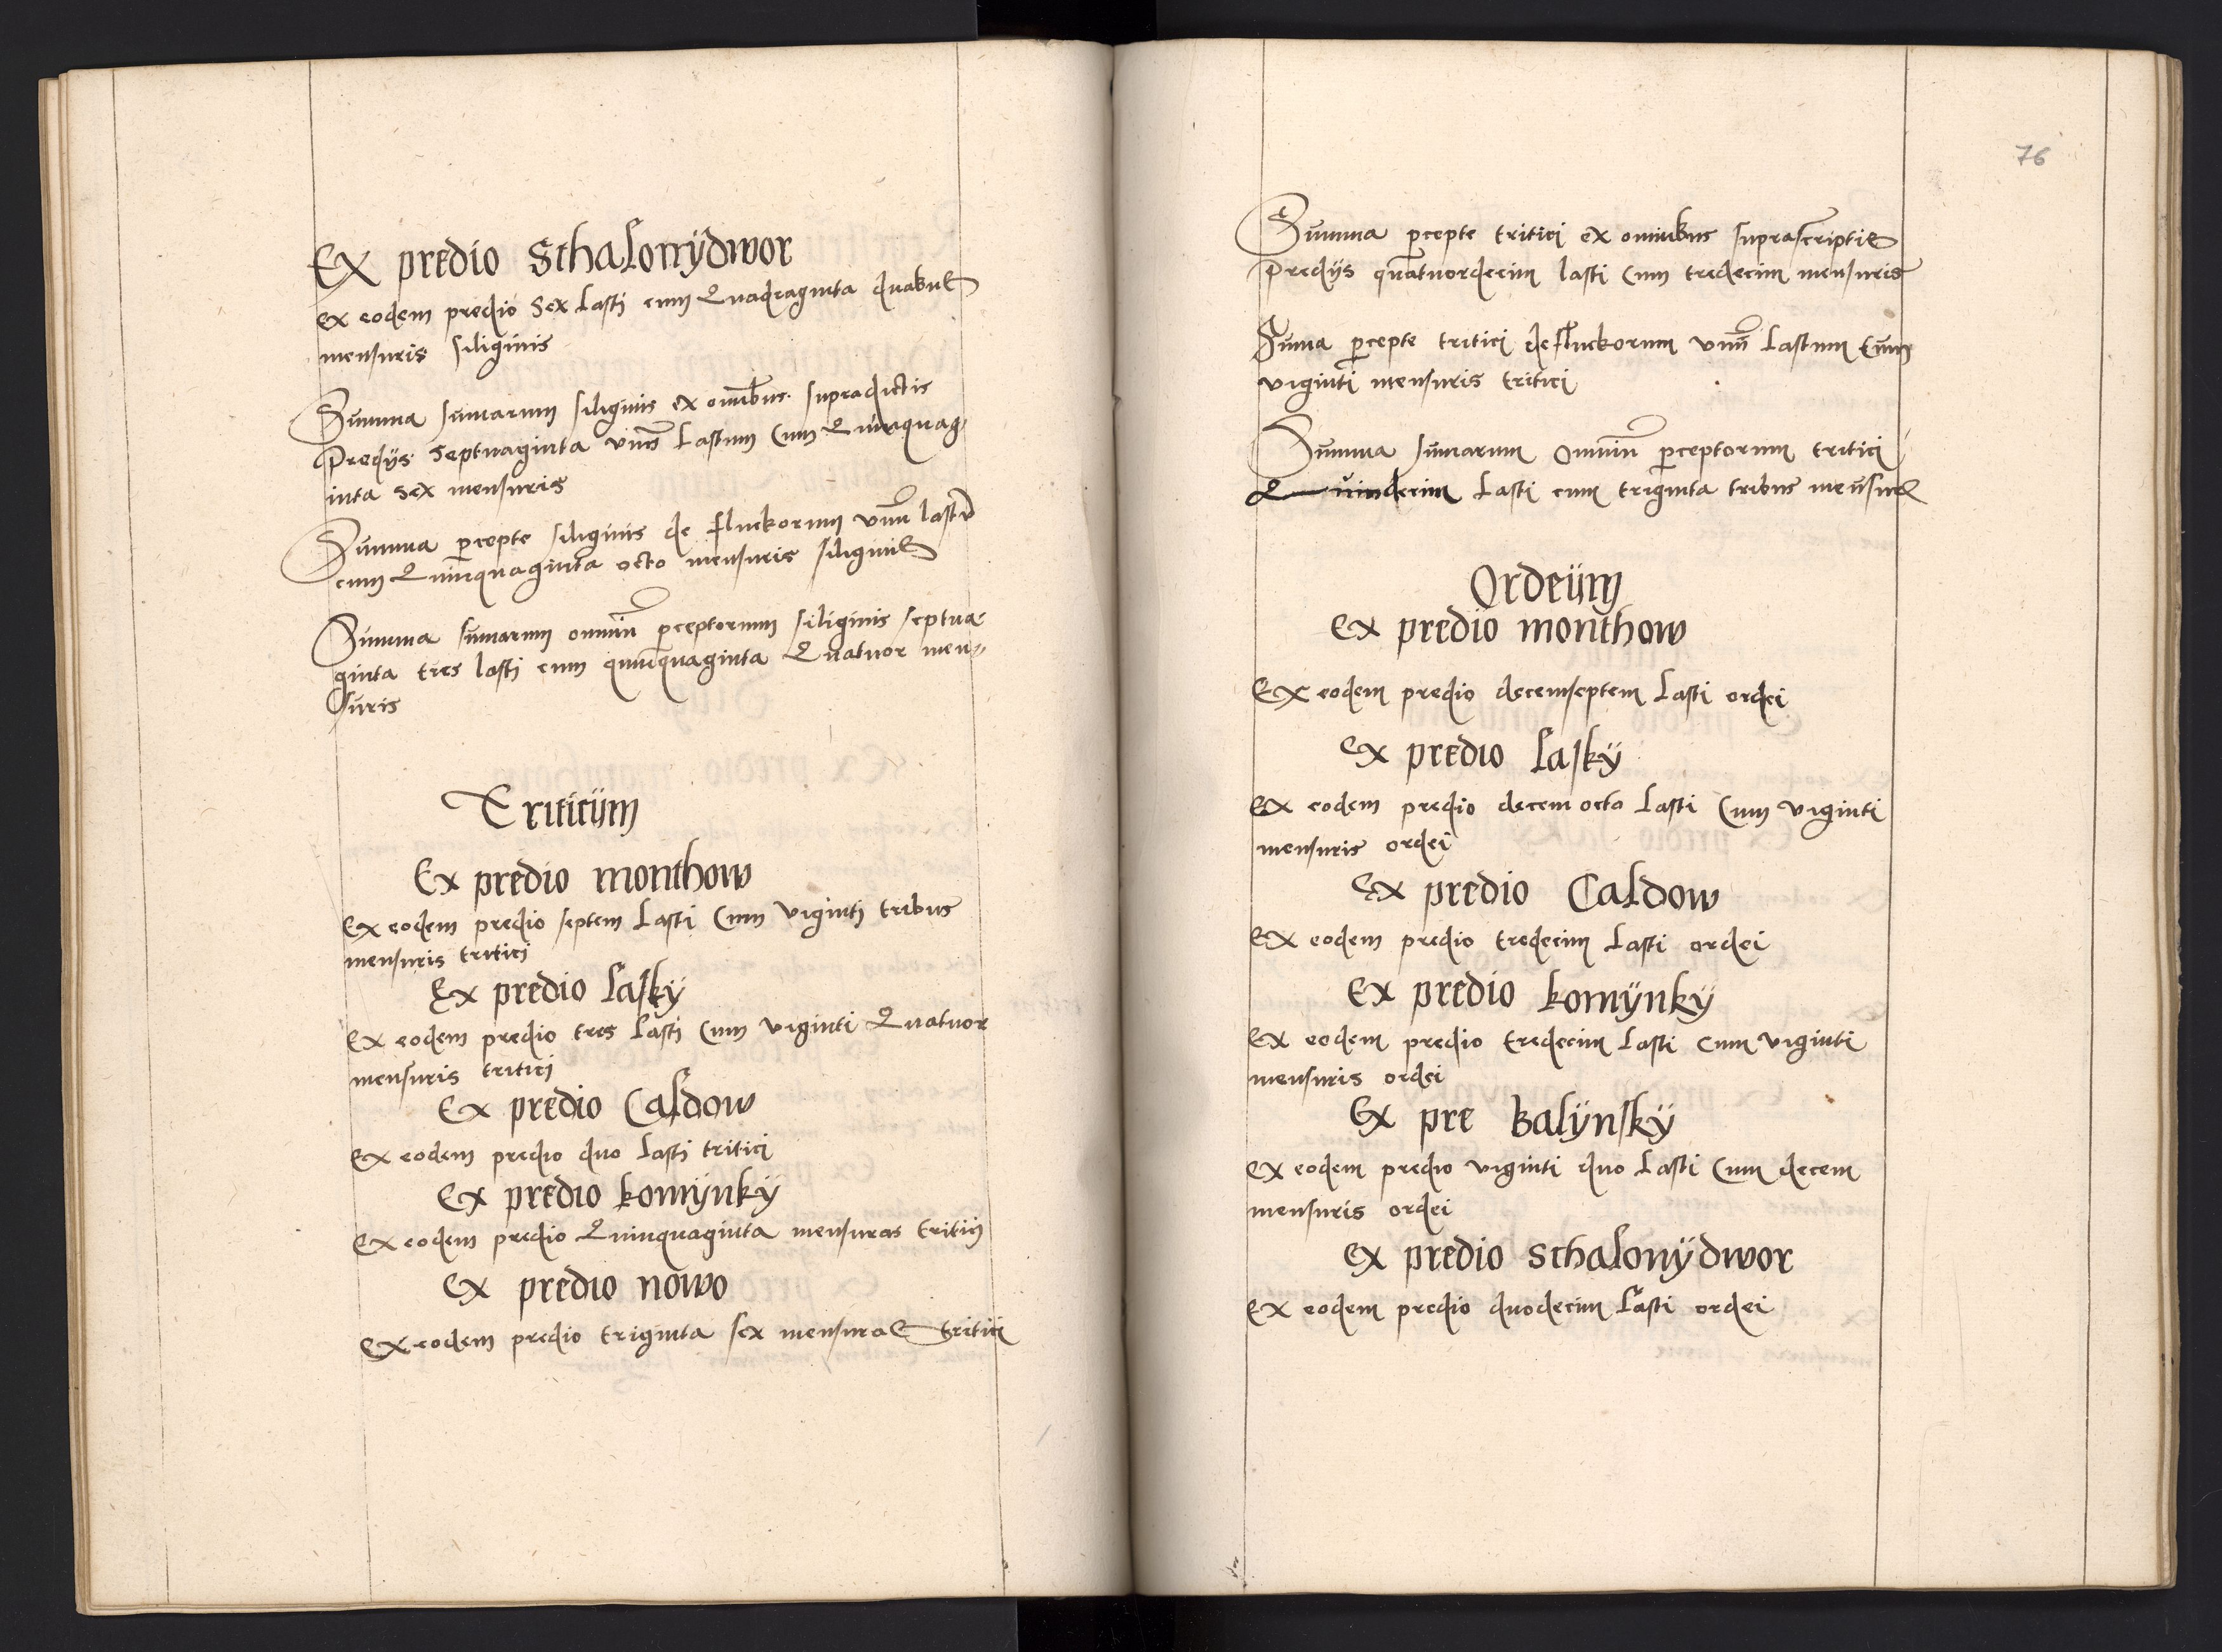 Ex predio Sthalonÿdwor
Ex eodem predio Sex Lasti cum Quadraginta duabus
mensuris siliginis
Summa sumarum siliginis ex omibus supradictis
Predÿs Septuaginta vnus Lastum Cum Quinquag
inta sex mensuris
Summa percepte siliginis de fluckorum vnum lastum
cum Quinquaginta octo mensuris siliginis
Summa sumarum omnium perceptorum siliginis septua
ginta tres lasti cum quinquaginta Quatuor men
suris
Triticüm
Ex predio monthow
Ex eodem predio septem Lasti Cum Viginti tribus
mensuris tritici
Ex predio Laskÿ
Ex eodem predio tres Lasti Cum viginti Quatuor
mensuris tritici
Ex predio Caldow
Ex eodem predio duo Lasti tritici
Ex predio komÿnkÿ
Ex eodem predio Quinquaginta mensuras tritici
Ex predio nowo
Ex eodem predio triginta sex mensuras tritici
76
Summa percepte tritici ex omnibus suprascriptis
Predÿs quatuordecim lasti Cum tredecim mensuris
Suma percepte tritici de fluckorum vnum Lastum Cum
viginti mensuris tritici
Summa sumarum Omnium perceptorum tritici
Quindecim Lasti cum triginta tribus mensuris
Ordeüm
Ex predio monthow
Ex eodem predio decemseptem Lasti ordei
Ex predio Laskÿ
Ex eodem predio decem octo Lasti Cum viginti
mensuris ordei
Ex predio Caldow
Ex eodem predio tredecim Lasti ordei
Ex predio komÿnkÿ
Ex eodem predio tredecim Lasti Cum viginti
mensuris ordei
Ex pre Balÿnskÿ
Ex eodem predio viginti duo Lasti Cum decem
mensuris ordei
Ex predio Sthalonÿdwor
Ex eodem predio duodecim Lasti ordei